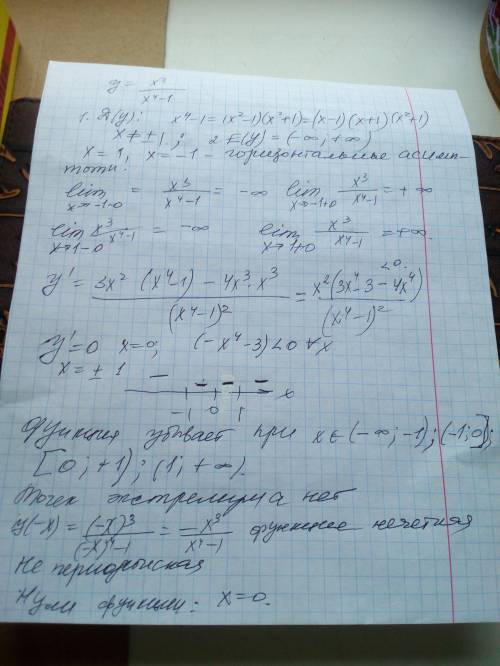 y = x³/(x⁴-1)
1. D(y): x⁴-1 = (x²-1)(x²+1) = (x-1)(x+1)(x²+1)
x ≠ ±1; 2 E(y) = (-∞; +∞)
x = 1, x = -1 - горизонтальные асимп-
тоты.
lim x→-1-0 = x³/(x⁴-1) = -∞ lim x→-1+0 x³/(x⁴-1) = +∞
lim x→1-0 x³/(x⁴-1) = -∞ lim x→1+0 x³/(x⁴-1) = +∞.
y' = (3x²(x⁴-1) - 4x³·x³)/(x⁴-1)² = x²(3x⁴-3-4x⁴)/(x⁴-1)² <0
y'=0 x=0; (-x⁴-3)<0 ∀x
x = ±1
- - - -
-1 0 1 x
Функция убывает при x∈(-∞;-1);(-1;0];
[0;+1);(1;+∞).
Точек экстремума нет
y(-x) = (-x)³/((-x)⁴-1) = -x³/(x⁴-1) функция нечетная
Не периодическая
Нули функции: x=0.